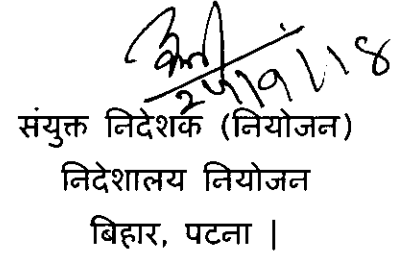 संयुक्त निदेशक (नियोजन)
निदेशालय नियोजन
बिहार, पटना |